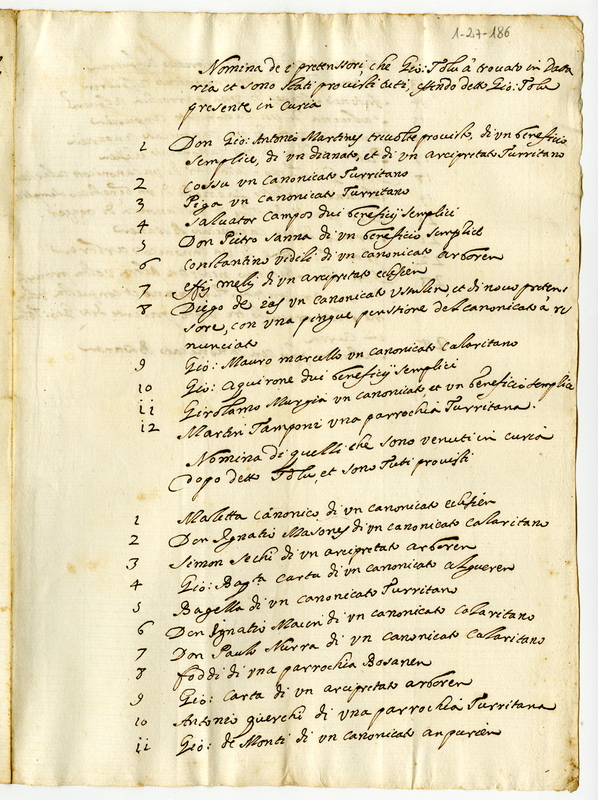 1-27-186
Nomina de i pretenssori, che Gio: Tolu à trovato in Data
ria et sono stati provisti tuti, essendo detto Gio: Tolu
presente in curia
1 Don Gio: Antonio Martines tre volte provisto, di un beneficio
semplice, di un dianato, et di un arcipretato Turritano
2 Cossu un canonicato Turritano
3 Piga un canonicato Turritano
4 Salvator Campos dui beneficij semplici
5 Don Pietro Sanna di un beneficio semplice
6 Constantino di un canonicato arboren
7 Effij mely di un arcipretato eclesien
8 Diego de ras un canonicato Usulen, et di novo pretens
sore, con una pingue penstione del canonicato à ri
nunciato
9 Gio: Mauro marcello un canonicato Calaritano
10 Gio: Aquirone dui beneficij semplici
11 Girolamo Murgia un canonicato et un beneficio semplice
12 Martin Tamponi una parrochia Turritana.
Nomina di quelli che sono venuti in curia
dopo detto Tolu, et sono Tuti provisti
1 Maletta Canonico di un canonicato eclesien
2 Don Ignatio Masones di un canonicato Calaritano
3 Simon Sechi di un arcipretato arboren
4 Gio: Bapta Carta di un canonicato algueren
5 Bagella di un canonicato Turritano
6 Don Ignatio di un canonicato Calaritano
7 Don Paulo Nurra di un canonicato Calaritano
8 foddi di una parrochia Bosanen
9 Gio: Carta di un arcipretato arboren
10 Antonio querchi di una parrochia Turritana
11 Gio: de Monti di un canonicato ampurien